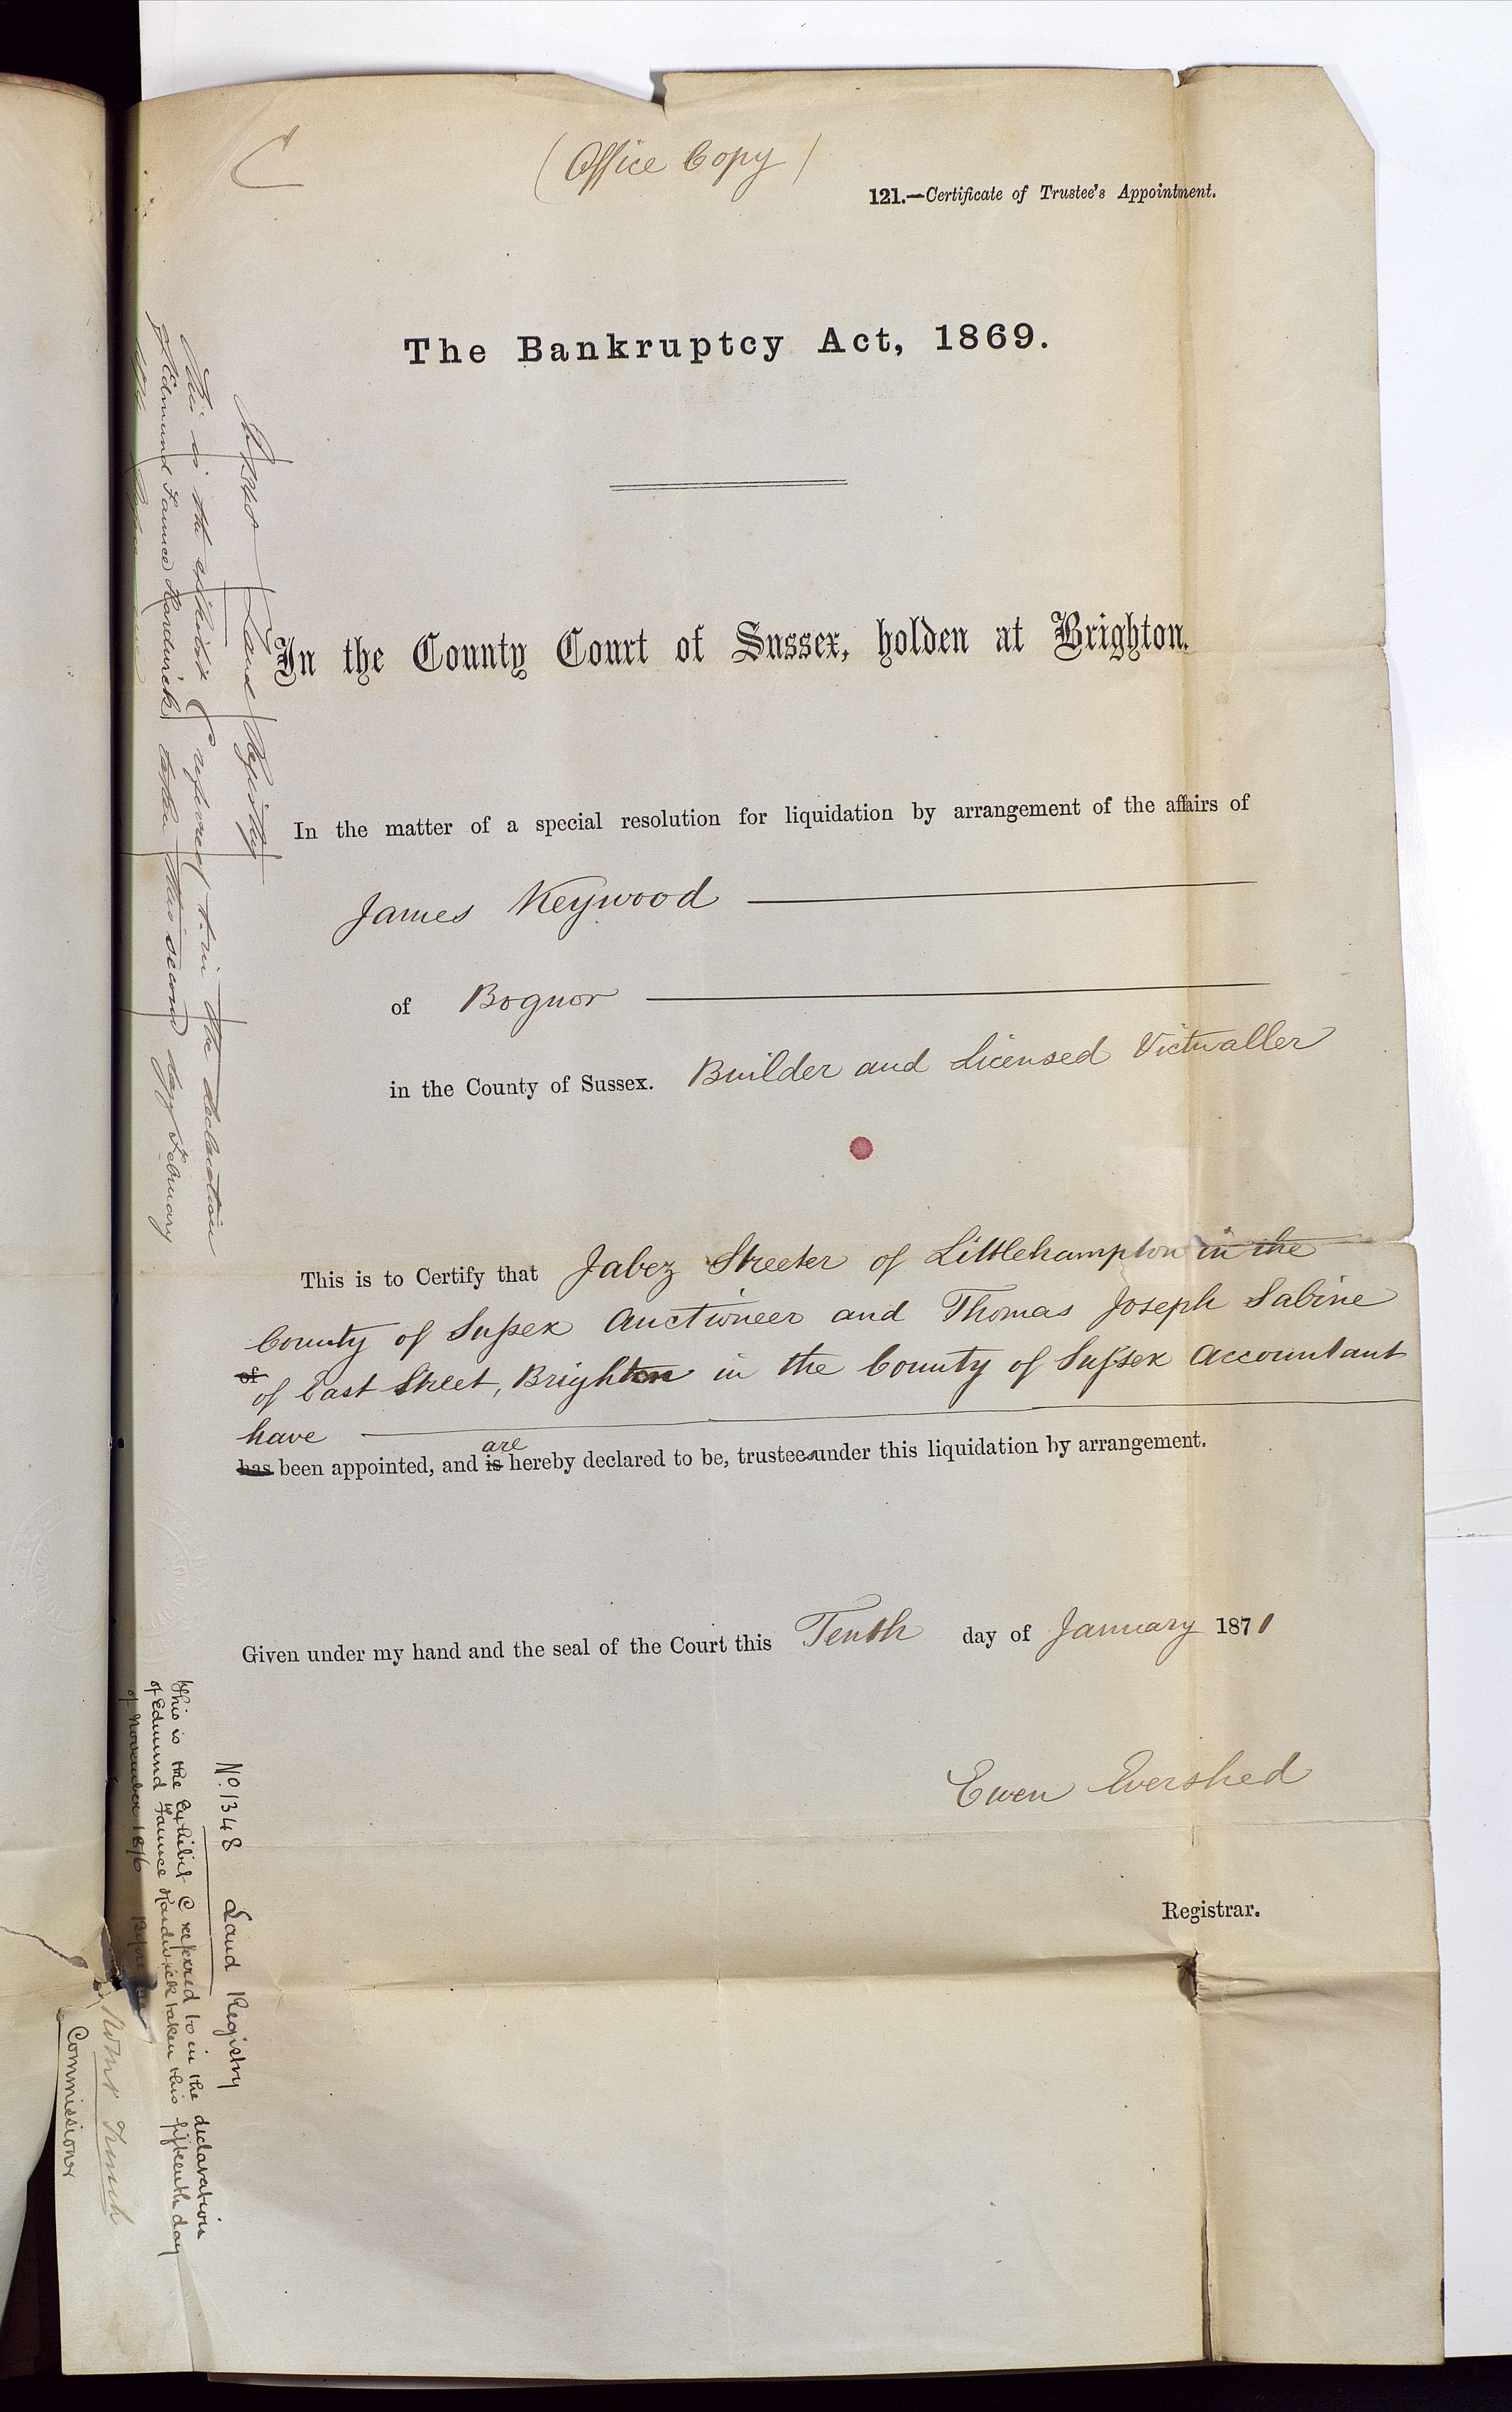 C
(Office Copy)
121.—Certificate of Trustee's Appointment.
The Bankruptcy Act, 1869.
In the County Court of Sussex, holden at Brighton.
In the matter of a special resolution for liquidation by arrangement of the affairs of
James Keywood
of Bognor
in the County of Sussex. Builder and Licensed Victualler
This is to Certify that Jabez Streeter of Littlehampton in the
County of Sussex Auctioneer and Thomas Joseph Sabine
of
of East Street, Brighton in the County of Sussex Accountant
have
are
has been appointed, and is hereby declared to be, trustees under this liquidation by arrangement.
Given under my hand and the seal of the Court this Tenth day of January 1871
Ewen Evershed
Registrar.
Land Registry
This is the exhibit C referred to in the declaration
of Edmund Faunce Hardwick taken this second day February
No. 1348 Land Registry
This is the Exhibit C referred to in the declaration
of Edmund Faunce Hardwick taken this fifteenth day
of November 1876 Before me
Commissioner